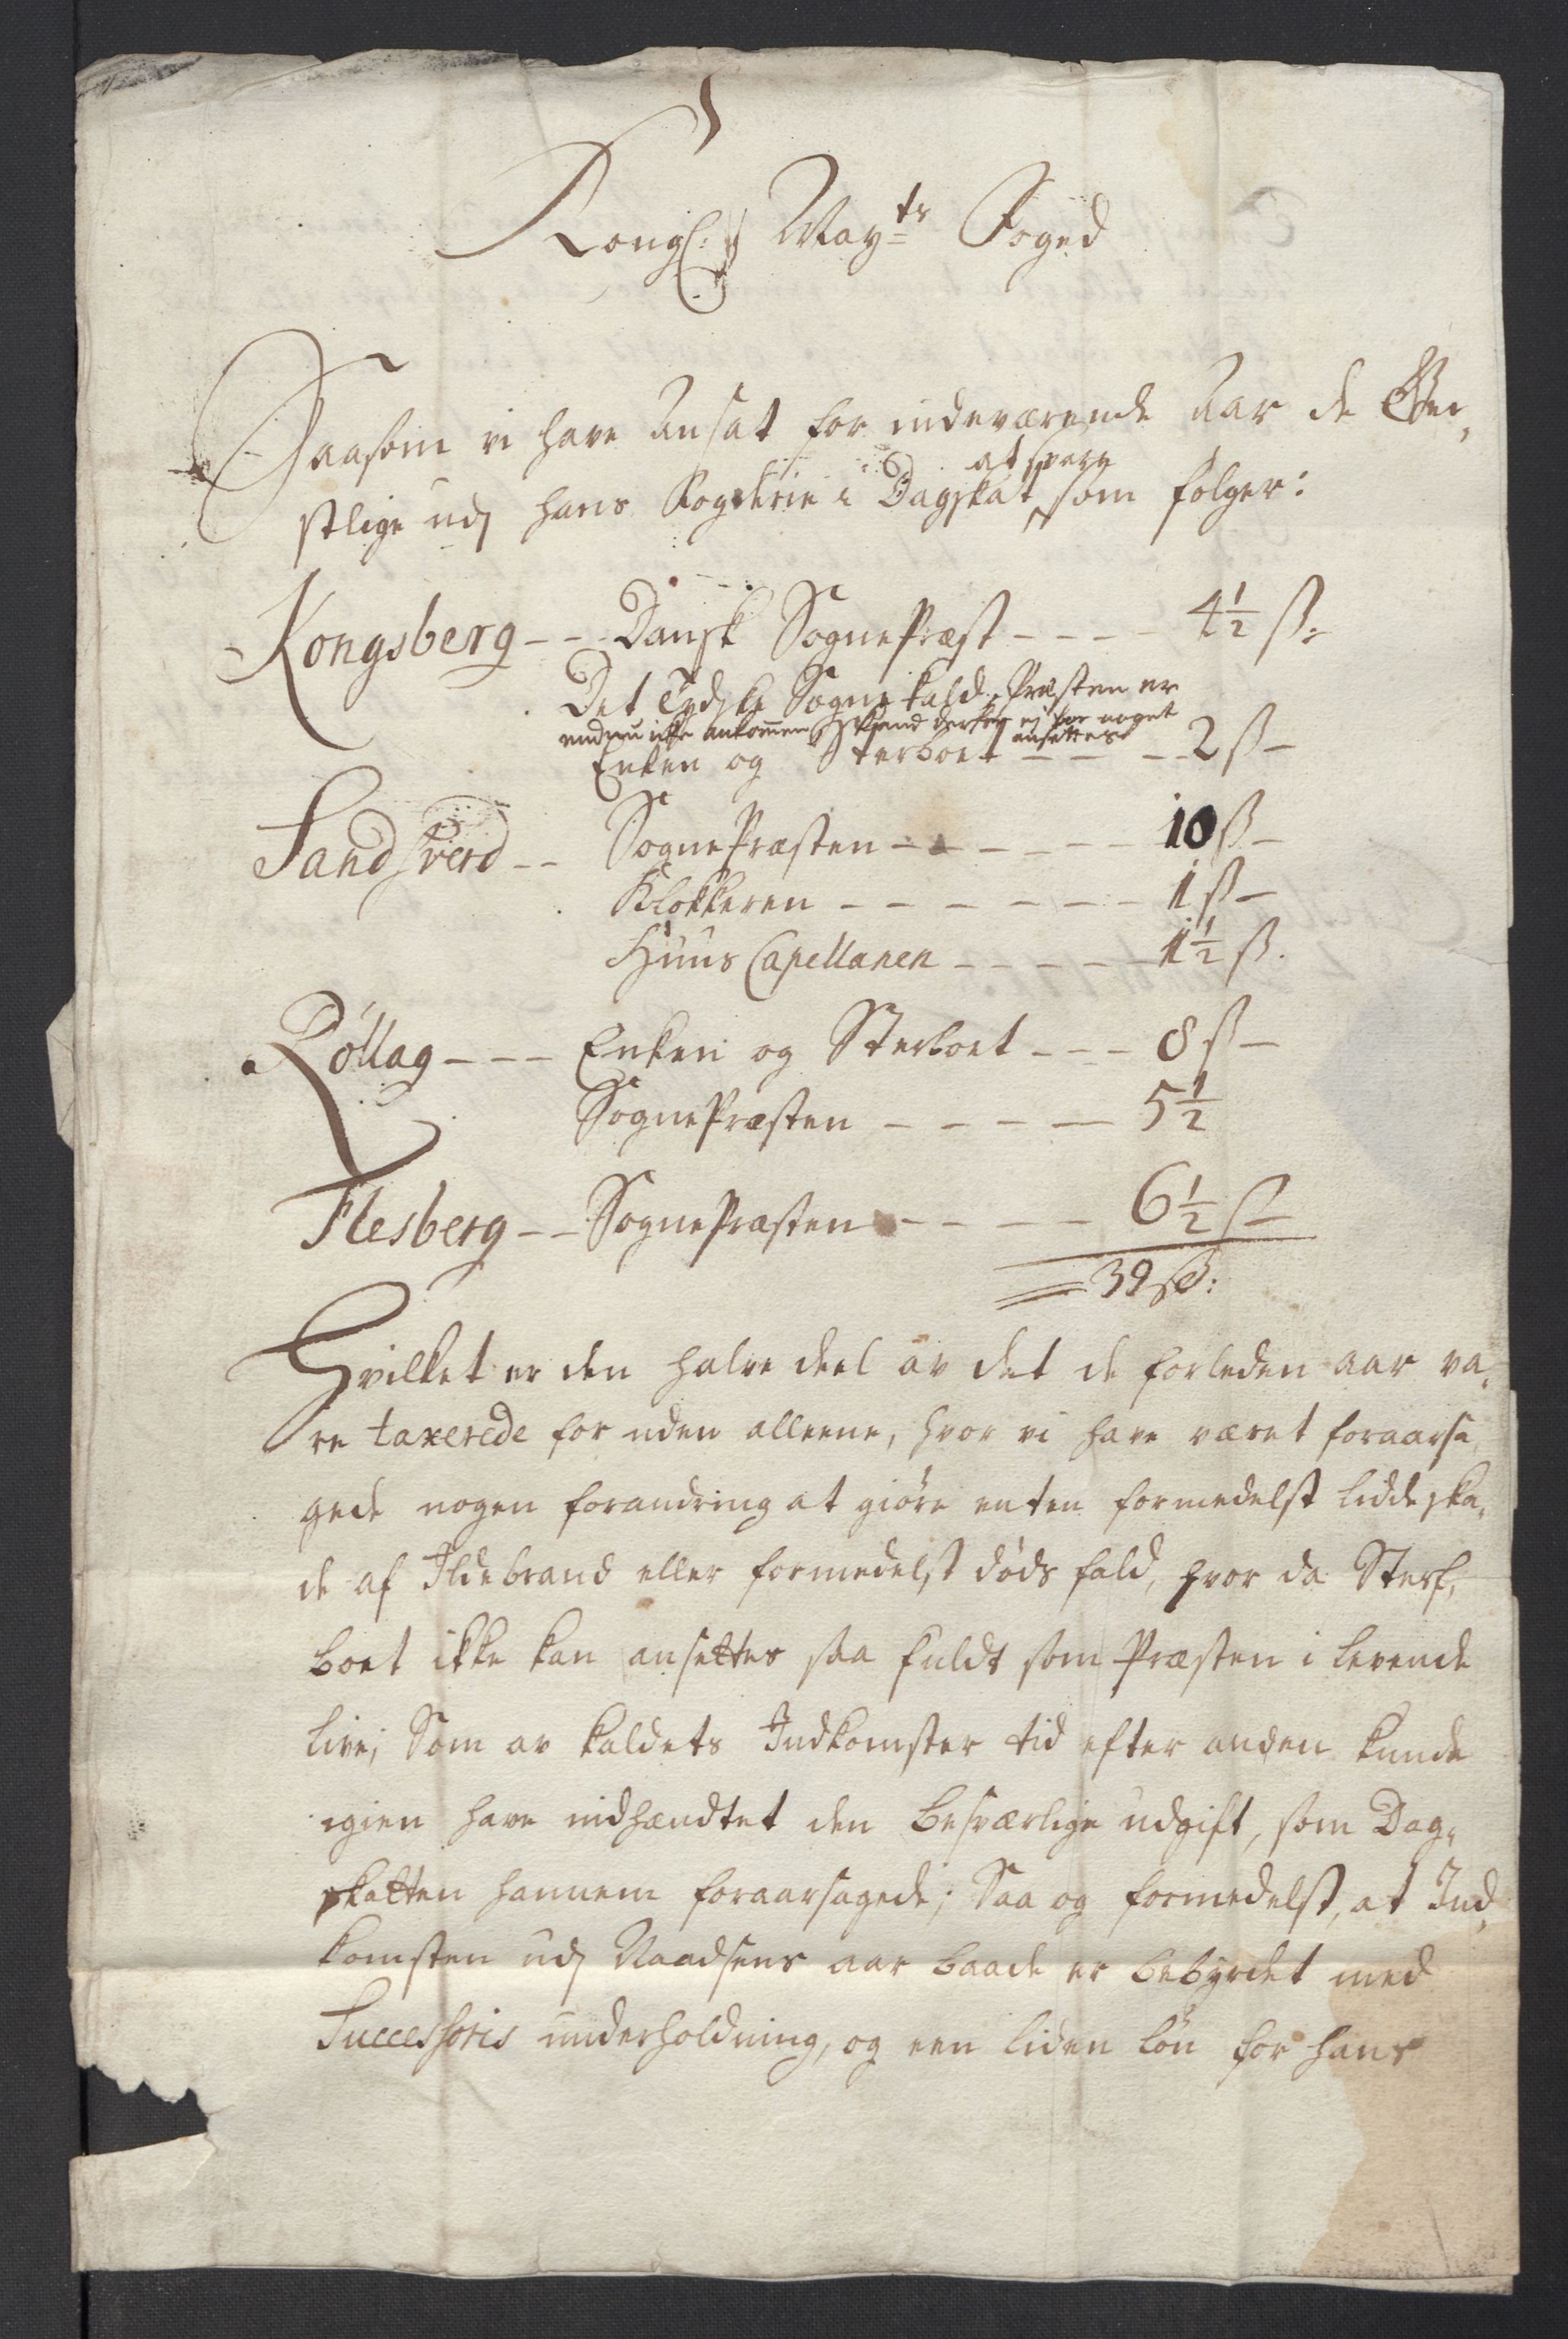 Kongl: Mayts Foged
Saasom vi have Ansat for indeværende Aar de Gei„
at svare
stlige udj hans Fogderie i Dagskat som følger:
Kongsberg - - - Dansk SognePræst - - - - 4½ ß:
Det Tydske Sognekald, Præsten er
endnu ikke ankommen, kand derfor ej for noget
ansættes
Enken og Sterboet - - - - 2 ß -
Sandsverd - - SognePræsten - - - - - - 10 ß -
Klokkeren - - - - - - 1 ß -
Huus Capellanen - - - - - 1½ ß.
Röllag - - - Enken og Sterboet - - - 8 ß -
SognePræsten - - - - 5½
Flesberg - - SognePræsten - - - - 6½ ß
39 ß:
Hvilket er den halve deel av det de forleden aar va„
re taxerede for uden alleene, hvor vi have været foraarsa„
gede nogen forandring at giøre enten formedelst lidde ska„
de af Ildebrand eller formedelst døds fald, hvor da Sterf„
boet ikke kan ansettes saa fuldt som Præsten i levende
live; Som av kaldets Indkomster tid efter anden kunde
igien have indhændtet den besværlige udgift, som Dag„
skatten hannem foraarsagede; Saa og formedelst, at Ind„
komsten udj Naadsens aar baade er bebyrdet med
Successoris underholdning, og een liden løn for hans